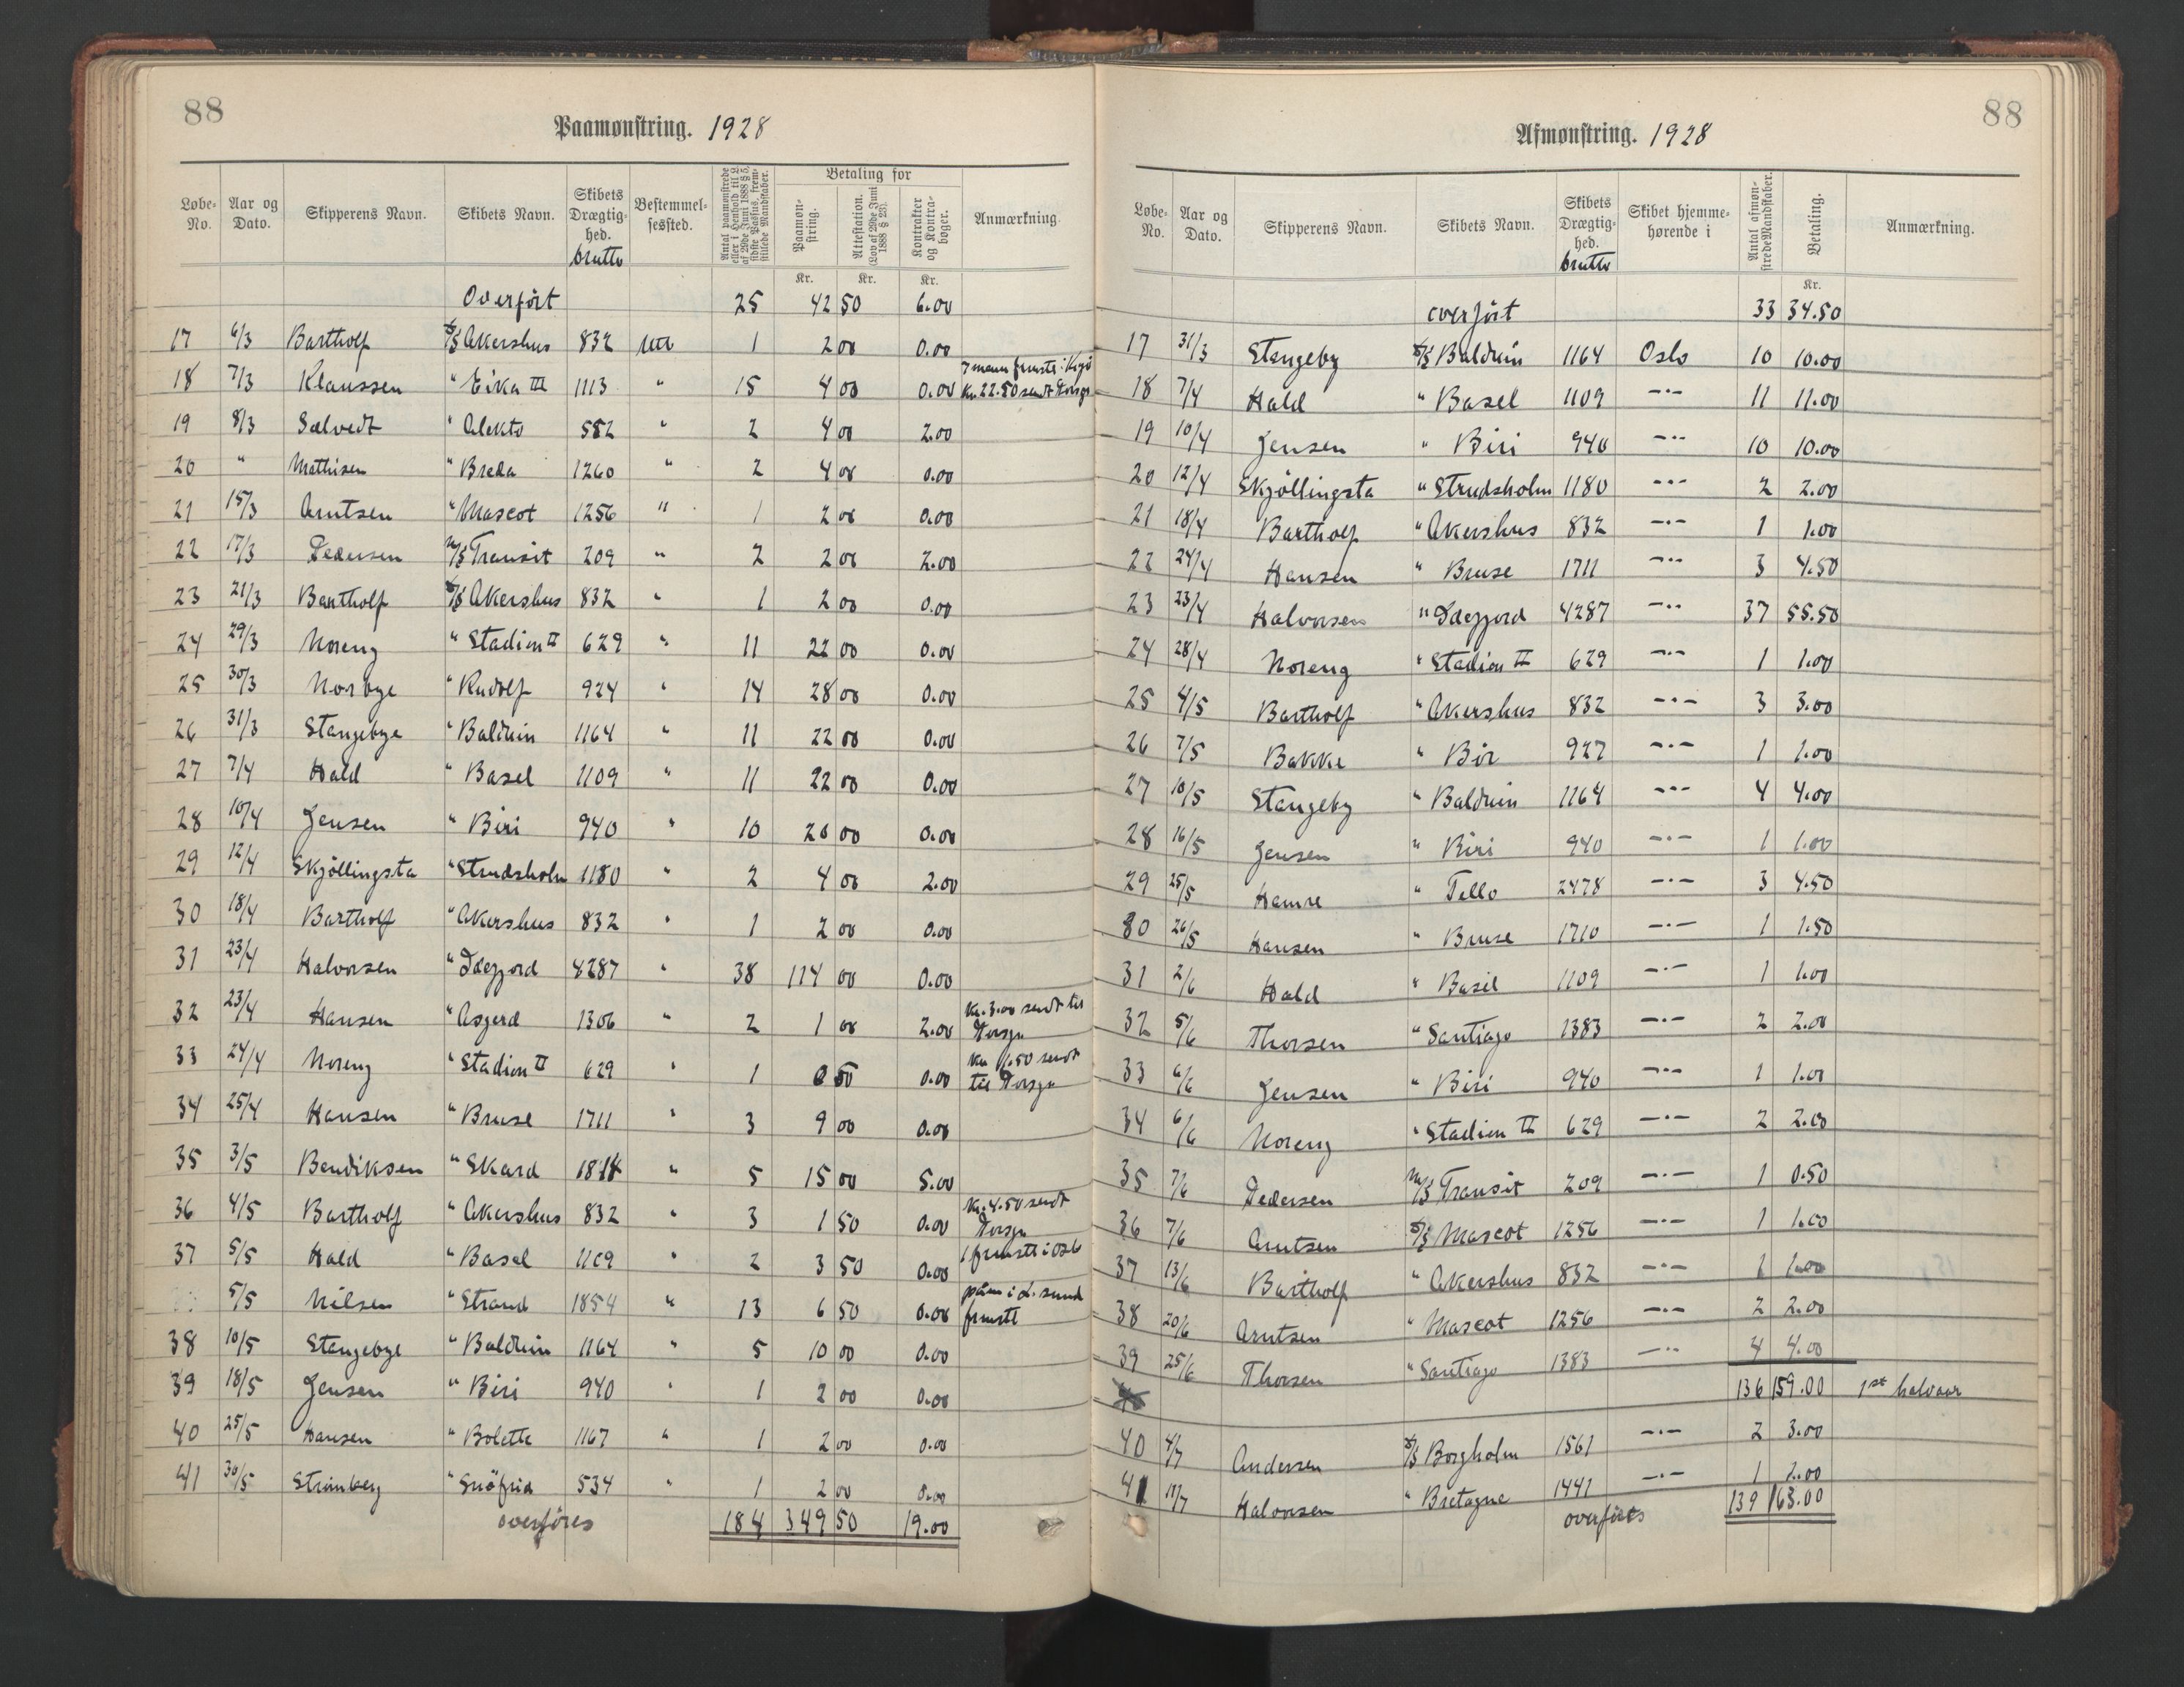 88
Paamønstring. 1928
Løbe-No. Aar og Dato. Skipperens Navn. Skibets Navn. Skibets Drægtighed. brutto Bestemmelsessted. Antal paamønstrede eller i Henhold til L. af 29de Juni 1888 § 5, sidste Passus, fremstillede Mandskaber. Betaling for Paamønstring. Attestation. (Lov af 29de Juni 1888 § 23). Kontrakter og Kontrabøger. Anmærkning
Kr. Kr. Kr.
Overført 25 42 50 6.00
17 6/3 Bartholf S/S Akershus 832 1 2 00 0.00
18 7/3 Klaussen " Eika III 1113 " 15 4 00 0.00 7 mann Kr. 22.50 sendt
19 8/3 Salvedt " Alekto 582 " 2 4 00 2.00
20 " Mathisen " Breda 1260 " 2 4 00 0.00
21 15/3 Arntsen " Mascot 1256 " 1 2 00 0.00
22 17/3 Pedersen M/S Transit 209 " 2 2 00 2.00
23 21/3 Bartholf S/S Akershus 832 " 1 2 00 0.00
24 29/3 Noreng " Stadion II 629 " 11 22 00 0.00
25 30/3 Norbye " Rudolf 924 " 14 28 00 0.00
26 31/3 Stangebye " Balduin 1164 " 11 22 00 0.00
27 7/4 Hald " Basel 1109 " 11 22 00 0.00
28 10/4 Jensen " Biri 940 " 10 20 00 0.00
29 12/4 Skjöllingsta " Strudsholm 1180 " 2 4 00 2.00
30 18/4 Bartholf " Akershus 832 " 1 2 00 0.00
31 23/4 Halvorsen " Idefjord 4287 " 38 114 00 0.00
32 23/4 Hansen " Asgerd 1306 " 2 1 00 2.00 Kr. 3.00 sendt til Porsgr
33 24/4 Noreng " Stadion II 629 " 1 0 50 0.00 Kr 1.50 sendt til Porsgr
34 25/4 Hansen " Bruse 1711 " 3 9 00 0.00
35 3/5 Bendiksen " Skard 1818 " 5 15 00 5.00
36 4/5 Bartholf " Akershus 832 " 3 1 50 0.00 Kr. 4.50 sendt Porsgr
37 5/5 Hald " Basel 1109 " 2 3 50 0.00 1 frmstt i Oslo
5/5 Nilsen " Strand 1854 " 13 6 50 0.00 påm i L. sund frmstt
38 10/5 Stangebye " Balduin 1164 " 5 10 00 0.00
39 18/5 Jensen " Biri 940 " 1 2 00 0.00
40 25/5 Hansen " Bolette 1167 " 1 2 00 0.00
41 30/5 Strömberg " Snöfrid 534 " 1 2 00 0.00
overföres 184 349 50 19.00
88
Afmønstring. 1928
Løbe-No. Aar og Dato. Skipperens Navn. Skibets Navn. Skibets Drægtighed. brutto Skibet hjemmehørende i Antal afmønstrede Mandskaber. Betaling. Anmærkning.
Kr.
overført 33 34.50
17 31/3 Stangeby S/S Balduin 1164 Oslo 10 10.00
18 7/4 Hald " Basel 1109 -"- 11 11.00
19 10/4 Jensen " Biri 940 -"- 10 10.00
20 12/4 Skjöllingsta " Strudsholm 1180 -"- 2 2.00
21 18/4 Bartholf " Akershus 832 -"- 1 1.00
22 24/4 Hansen " Bruse 1711 -"- 3 4.50
23 23/4 Halvorsen " Idefjord 4287 -"- 37 55.50
24 28/4 Noreng " Stadion II 629 -"- 1 1.00
25 4/5 Bartholf " Akershus 832 -"- 3 3.00
26 7/5 Bakke " Bir 927 -"- 1 1.00
27 10/5 Stangeby " Balduin 1164 -"- 4 4.00
28 16/5 Jensen " Biri 940 -"- 1 1.00
29 25/5 Hamre " Tello 2478 -"- 3 4.50
30 26/5 Hansen " Bruse 1710 -"- 1 1.50
31 2/6 Hald " Basel 1109 -"- 1 1.00
32 5/6 Thorsen " Santiago 1383 -"- 2 2.00
33 6/6 Jensen " Biri 940 -"- 1 1.00
34 6/6 Noreng " Stadion II 629 -"- 2 2.00
35 7/6 Pedersen M/S Transit 209 -"- 1 0.50
36 7/6 Arntsen S/S Mascot 1256 -"- 1 1.00
37 13/6 Bartholf " Akershus 832 -"- 1 1.00
38 20/6 Arntsen " Mascot 1256 -"- 2 2.00
39 25/6 Thorsen " Santiago 1383 -"- 4 4.00
136 159.00 1st halvaar
40 4/7 Andersen S/S Borgholm 1561 -"- 2 3.00
41 11/7 Halvorsen " Bretagne 1441 -"- 1 1.00
overføres 139 163.00